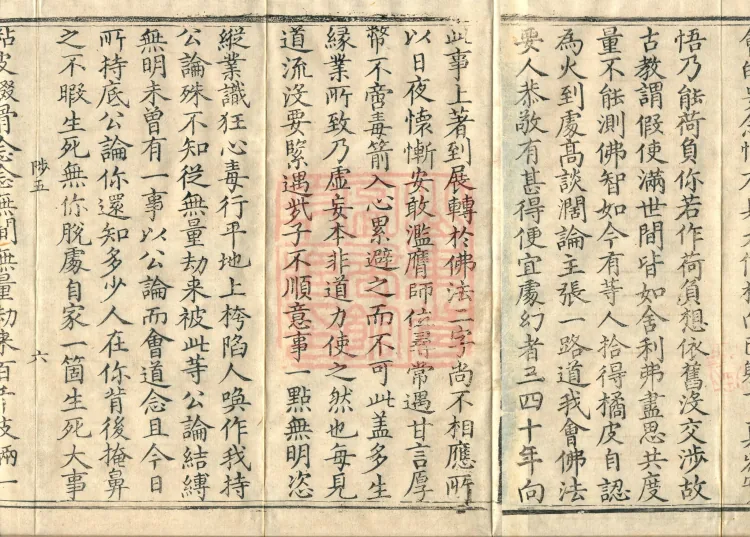 悟乃能荷負你若作荷負想依舊沒交涉故
古教謂假使滿世間皆如舍利弗盡思共度
量不能測佛智如今有等人拾得橘皮自認
為火到處高談濶論主張一路道我會佛法
要人恭敬有甚得便宜處幻者三四十年向
此事上著到展轉於佛法二字尚不相應所
以日夜懷慚安敢濫膺師位尋常遇甘言厚
幣不啻毒箭入心累避之而不可此盖多生
縁業所致乃虛妄本非道力使之然也每見
道流沒要緊遇些子不順意事一點無明恣
縱業識狂心毒行平地上揁陷人喚作我持
公論殊不知從無量劫来被此等公論結縛
無明未曽有一事以公論而會道念且今日
所持底公論你還知多少人在你背後掩鼻
之不暇生死無你脫處自家一箇生死大事
陟五 六